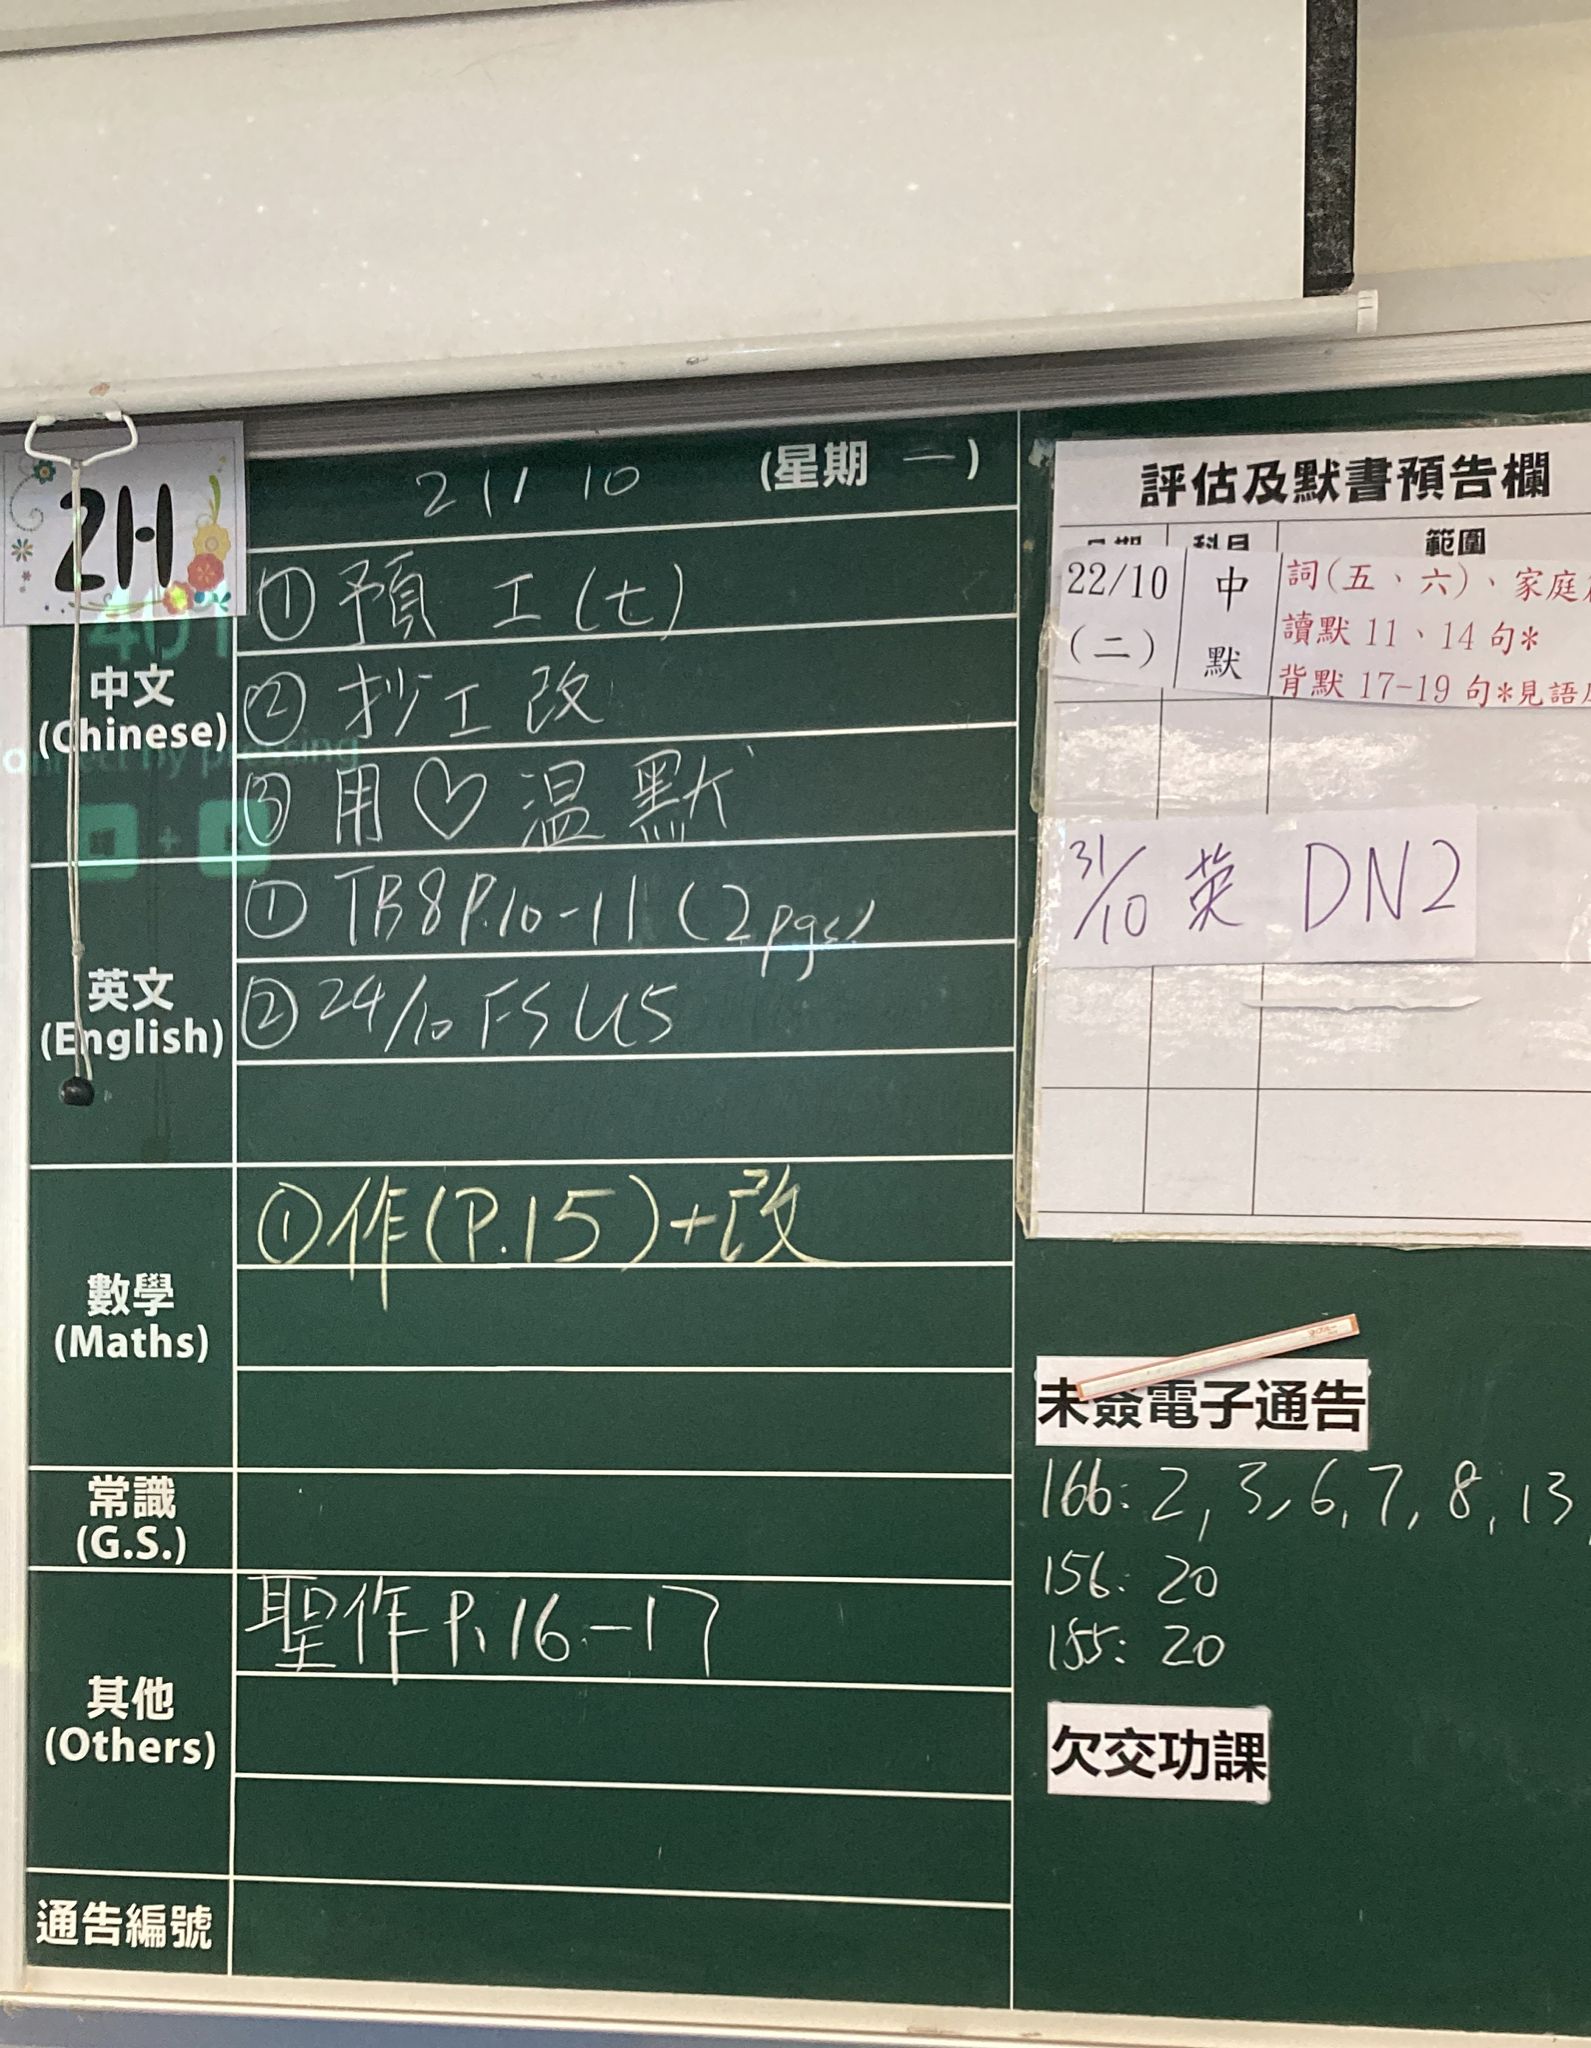 2H
21/10 (星期 一)
中文
(Chinese)
① 預 工(七)
② 抄工 改
③ 用♡ 温 默
英文
(English)
① TB8 P.10-11 (2pgs)
② 24/10 FS U5
數學
(Maths)
① 作(P.15)+改
常識
(G.S.)
其他
(Others)
聖作 P.16-17
通告編號
評估及默書預告欄
科目 範圍
22/10
(二)
中
默
詞(五、六)、家庭
讀默 11、14 句*
背默 17-19 句*見語
31/10 英 DN2
未簽電子通告
166: 2, 3, 6, 7, 8, 13
156: 20
155: 20
欠交功課